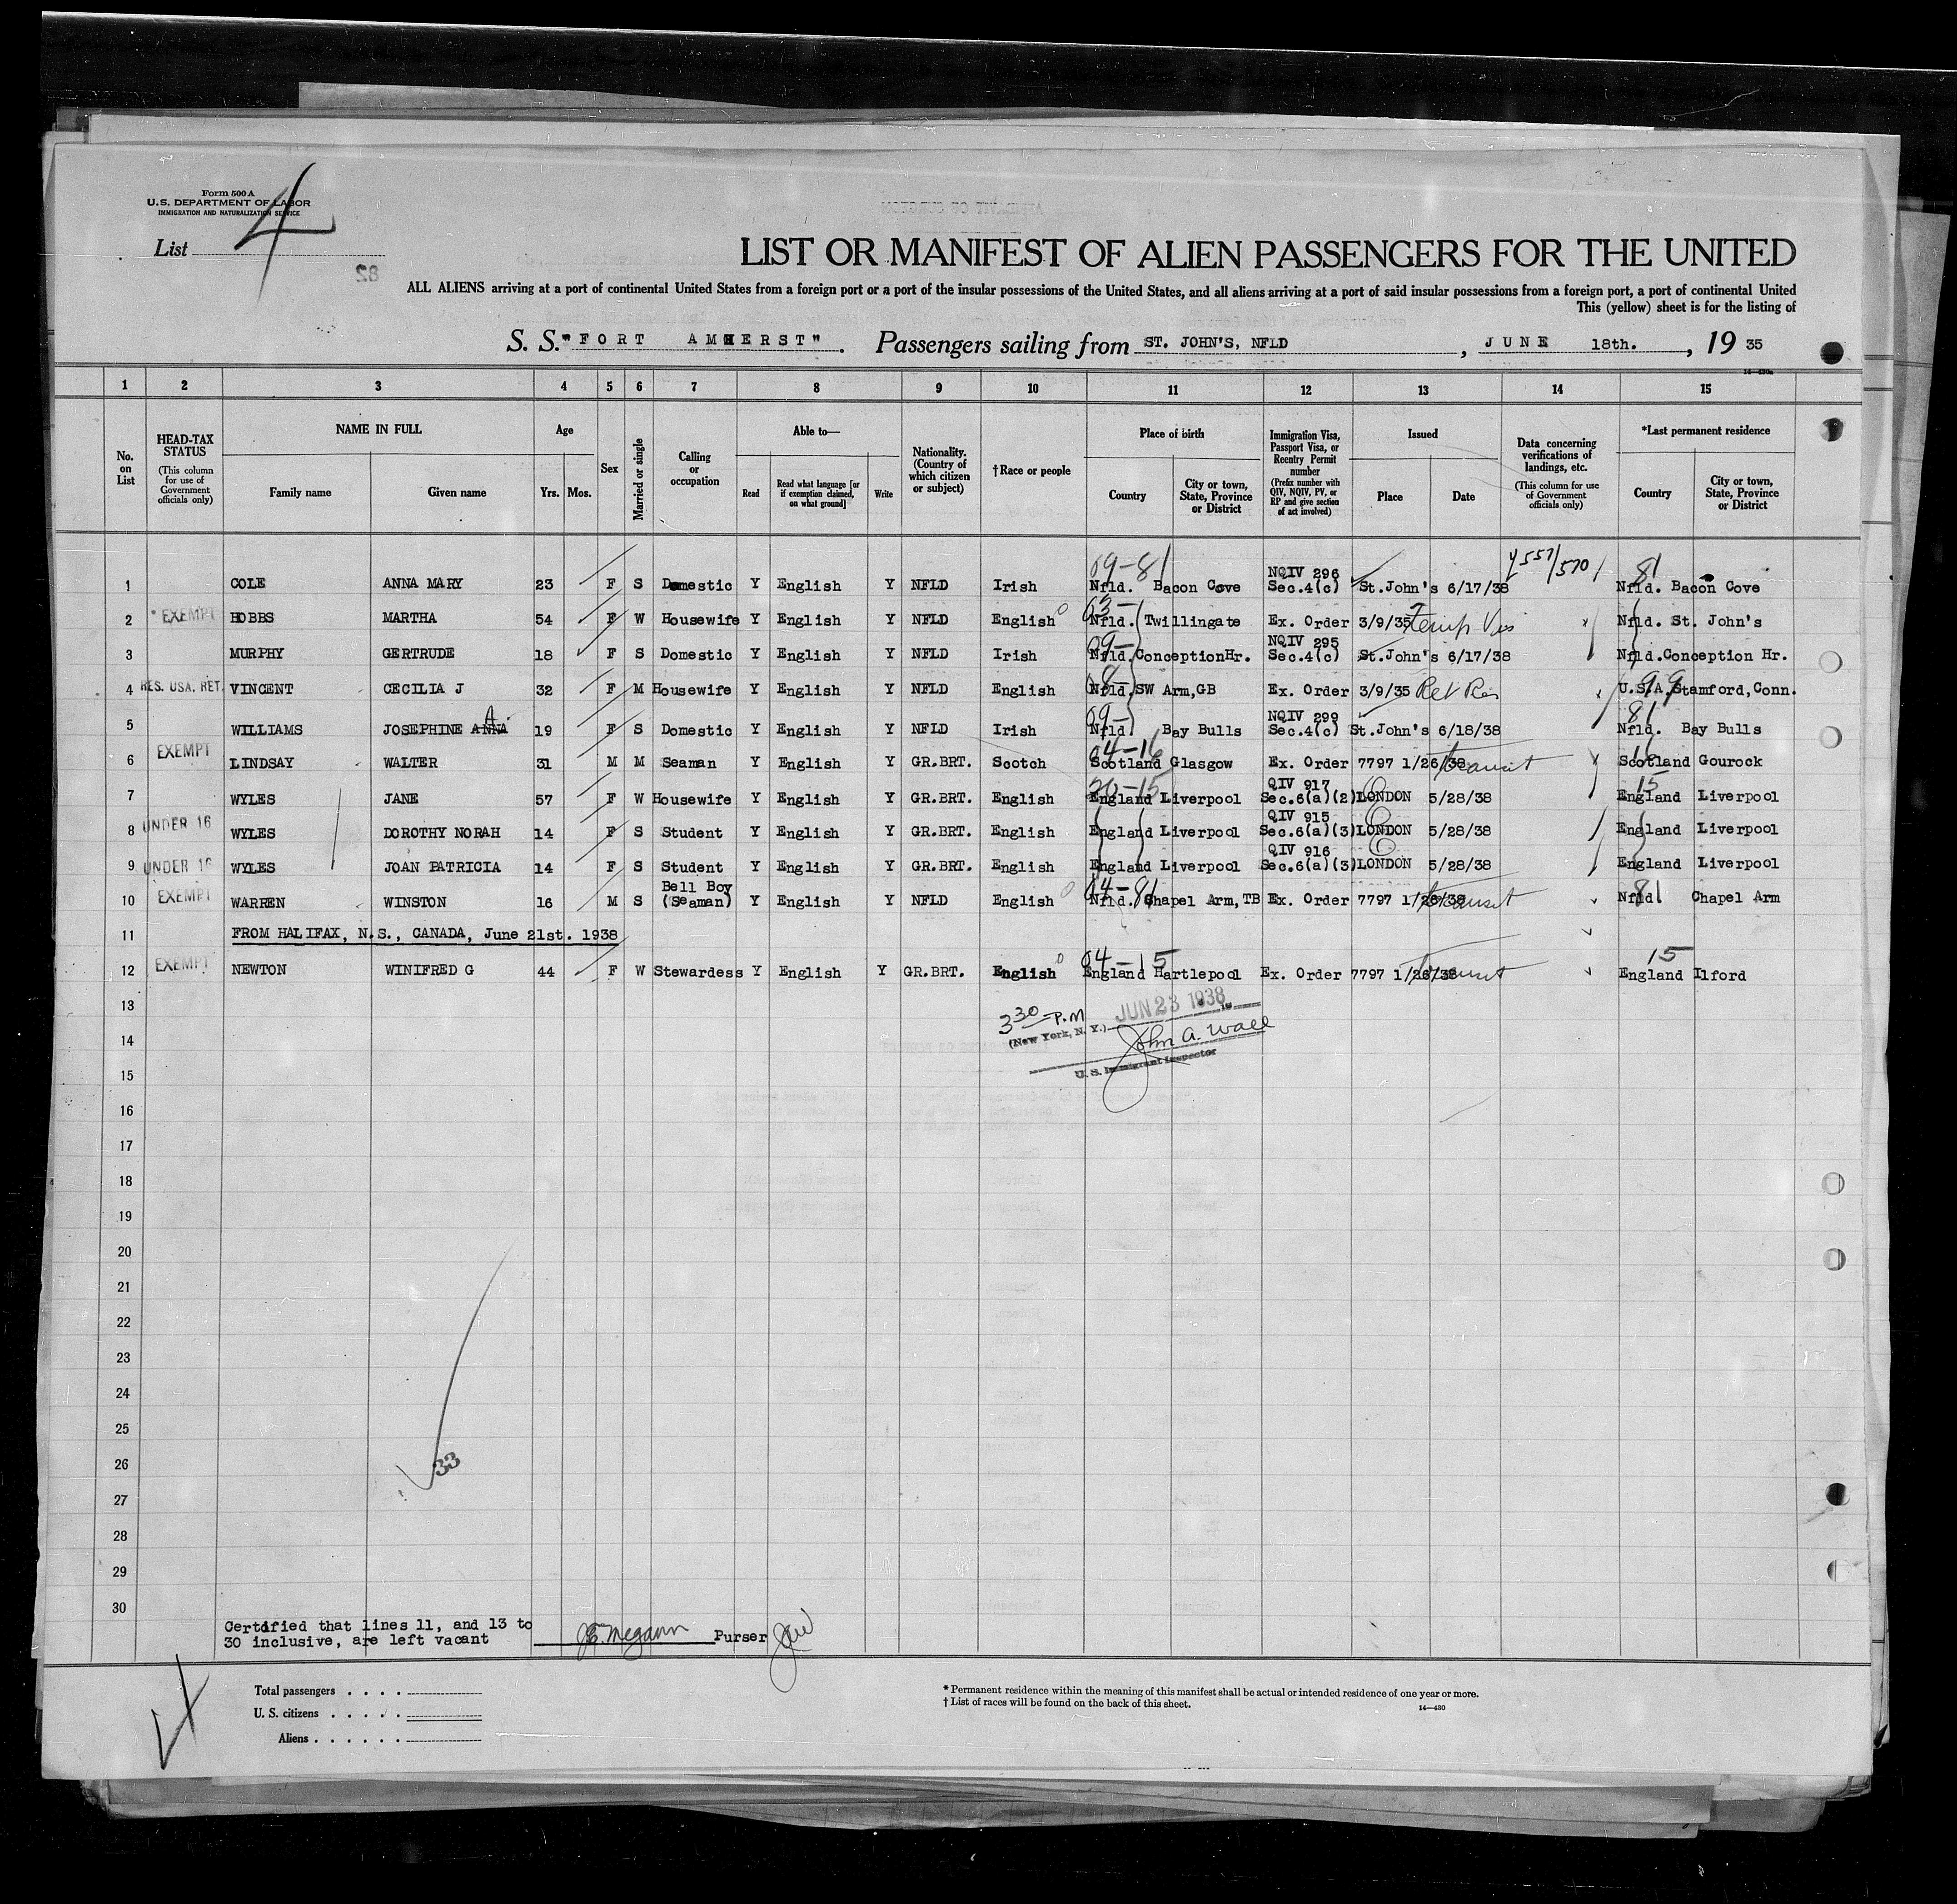 Form 500 A
U.S. DEPARTMENT OF LABOR
IMMIGRATION AND NATURALIZATION SERVICE
List 4
82
LIST OR MANIFEST OF ALIEN PASSENGERS FOR THE UNITED
ALL ALIENS arriving at a port of continental United States from a foreign port or a port of the insular possessions of the United States, and all aliens arriving at a port of said insular possessions from a foreign port, a port of continental United
This (yellow) sheet is for the listing of
S. S. "FORT AMHERST". Passengers sailing from ST. JOHN'S, NFLD, JUNE 18th., 19 35
1 2 3 4 5 6 7 8 9 10 11 12 13 14 15
No. on List
HEAD-TAX STATUS (This column for use of Government officials only)
NAME IN FULL Family name Given name
Age Yrs. Mos.
Sex
Married or single
Calling or occupation
Able to— Read Read what language [or if exemption claimed, on what ground] Write
Nationality. (Country of which citizen or subject)
†Race or people
Place of birth Country City or town, State, Province or District
Immigration Visa, Passport Visa, or Reentry Permit number (Prefix number with QIV, NQIV, PV, or RP and give section of act involved)
Issued Place Date
Data concerning verifications of landings, etc. (This column for use of Government officials only)
*Last permanent residence Country City or town, State, Province or District
09-81 NQIV 296 557/570 81
1 COLE ANNA MARY 23 F S Domestic Y English Y NFLD Irish Nfld. Bacon Cove Sec.4(c) St.John's 6/17/38 Nfld. Bacon Cove
2 EXEMPT HOBBS MARTHA 54 F W Housewife Y English Y NFLD English 03- Nfld. Twillingate Ex. Order 3/9/35 Temp Vis Nfld. St. John's
09- NQIV 295
3 MURPHY GERTRUDE 18 F S Domestic Y English Y NFLD Irish Nfld. Conception Hr. Sec.4(c) St.John's 6/17/38 Nfld. Conception Hr.
4 RES. USA. RET. VINCENT CECILIA J 32 F M Housewife Y English Y NFLD English Nfld. SW Arm,GB Ex. Order 3/9/35 Ret Res 99 U.S.A. Stamford, Conn.
09- NQIV 299 81
5 WILLIAMS JOSEPHINE ANNA A 19 F S Domestic Y English Y NFLD Irish Nfld Bay Bulls Sec.4(c) St.John's 6/18/38 Nfld. Bay Bulls
04-16 16
6 EXEMPT LINDSAY WALTER 31 M M Seaman Y English Y GR.BRT. Scotch Scotland Glasgow Ex. Order 7797 1/26/38 Transit Scotland Gourock
20-15 QIV 917 15
7 WYLES JANE 57 F W Housewife Y English Y GR.BRT. English England Liverpool Sec.6(a)(2) LONDON 5/28/38 England Liverpool
QIV 915
8 UNDER 16 WYLES DOROTHY NORAH 14 F S Student Y English Y GR.BRT. English England Liverpool Sec.6(a)(3) LONDON 5/28/38 England Liverpool
QIV 916
9 UNDER 16 WYLES JOAN PATRICIA 14 F S Student Y English Y GR.BRT. English England Liverpool Sec.6(a)(3) LONDON 5/28/38 England Liverpool
04-81 81
10 EXEMPT WARREN WINSTON 16 M S Bell Boy (Seaman) Y English Y NFLD English Nfld. Chapel Arm, TB Ex. Order 7797 1/26/38 Transit Nfld Chapel Arm
11 FROM HALIFAX, N.S., CANADA, June 21st. 1938
04-15 15
12 EXEMPT NEWTON WINIFRED G 44 F W Stewardess Y English Y GR.BRT. English England Hartlepool Ex. Order 7797 1/26/38 Transit England Ilford
13
3 30 P.M JUN 23 1938
(New York, N. Y.)
14
John A. Wall
U. S. Immigrant Inspector
15
16
17
18
19
20
21
22
23
24
25
26
33
27
28
29
30
Certified that lines 11, and 13 to
30 inclusive, are left vacant Purser
Total passengers
U. S. citizens
Aliens
* Permanent residence within the meaning of this manifest shall be actual or intended residence of one year or more.
† List of races will be found on the back of this sheet.
14—430